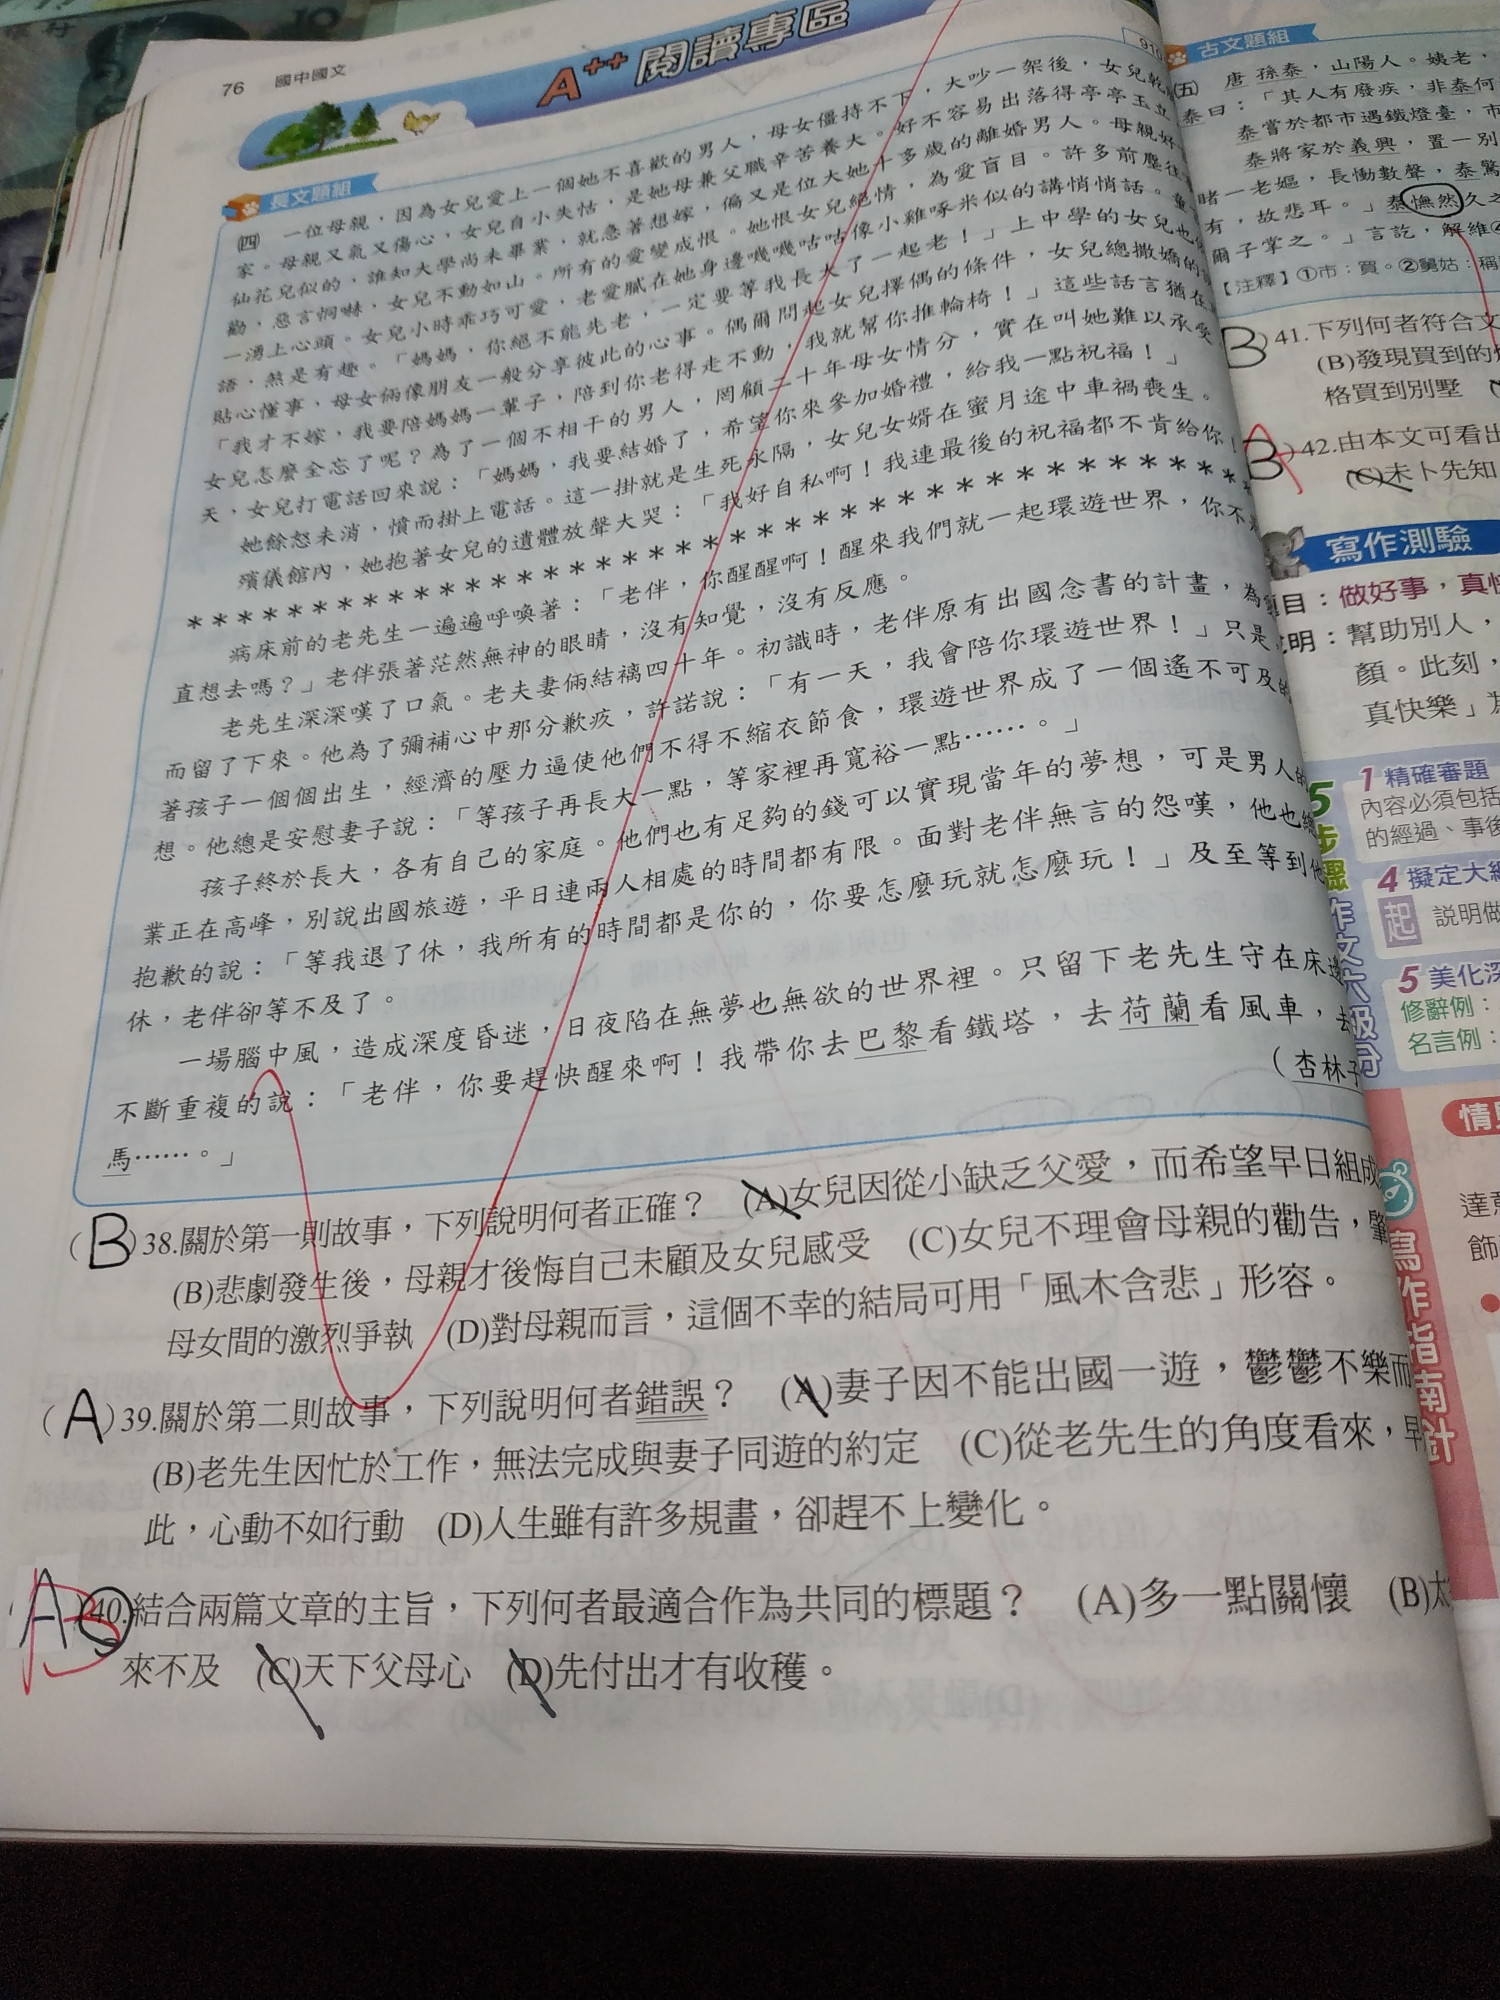 76 國中國文
A++ 閱讀專區
長文題組
㈣ 一位母親，因為女兒愛上一個她不喜歡的男人，母女僵持不下，大吵一架後，女兒
家。母親又氣又傷心，女兒自小失怙，是她母兼父職辛苦養大。好不容易出落得亭亭玉立
仙花兒似的，誰知大學尚未畢業，就急著想嫁，偏又是位大她十多歲的離婚男人。母親好
勸，惡言恫嚇，女兒不動如山。所有的愛變成恨。她恨女兒絕情，為愛盲目。許多前塵往
一湧上心頭。女兒小時乖巧可愛，老愛膩在她身邊嘰嘰咕咕像小雞啄米似的講悄悄話。童
語，煞是有趣。「媽媽，你絕不能先老，一定要等我長大了一起老！」上中學的女兒也
貼心懂事，母女倆像朋友一般分享彼此的心事。偶爾問起女兒擇偶的條件，女兒總撒嬌的
「我才不嫁，我要陪媽媽一輩子，陪到你老得走不動，我就幫你推輪椅！」這些話言猶在
女兒怎麼全忘了呢？為了一個不相干的男人，罔顧二十年母女情分，實在叫她難以承受
天，女兒打電話回來說：「媽媽，我要結婚了，希望你來參加婚禮，給我一點祝福！」
她餘怒未消，憤而掛上電話。這一掛就是生死永隔，女兒女婿在蜜月途中車禍喪生。
殯儀館內，她抱著女兒的遺體放聲大哭：「我好自私啊！我連最後的祝福都不肯給你！
＊＊＊＊＊＊＊＊＊＊＊＊＊＊＊＊＊＊＊＊＊＊＊＊＊＊＊＊＊＊＊＊＊＊＊＊＊＊＊
病床前的老先生一遍遍呼喚著：「老伴，你醒醒啊！醒來我們就一起環遊世界，你不
直想去嗎？」老伴張著茫然無神的眼睛，沒有知覺，沒有反應。
老先生深深嘆了口氣。老夫妻倆結褵四十年。初識時，老伴原有出國念書的計畫，為
而留了下來。他為了彌補心中那分歉疚，許諾說：「有一天，我會陪你環遊世界！」只是
著孩子一個個出生，經濟的壓力逼使他們不得不縮衣節食，環遊世界成了一個遙不可及的
想。他總是安慰妻子說：「等孩子再長大一點，等家裡再寬裕一點……。」
孩子終於長大，各有自己的家庭。他們也有足夠的錢可以實現當年的夢想，可是男人的
業正在高峰，別說出國旅遊，平日連兩人相處的時間都有限。面對老伴無言的怨嘆，他也總
抱歉的說：「等我退了休，我所有的時間都是你的，你要怎麼玩就怎麼玩！」及至等到他
休，老伴卻等不及了。
一場腦中風，造成深度昏迷，日夜陷在無夢也無欲的世界裡。只留下老先生守在床邊
不斷重複的說：「老伴，你要趕快醒來啊！我帶你去巴黎看鐵塔，去荷蘭看風車，去
馬……。」
（杏林子
（B）38.關於第一則故事，下列說明何者正確？ (A)女兒因從小缺乏父愛，而希望早日組成
(B)悲劇發生後，母親才後悔自己未顧及女兒感受 (C)女兒不理會母親的勸告，肇
母女間的激烈爭執 (D)對母親而言，這個不幸的結局可用「風木含悲」形容。
（A）39.關於第二則故事，下列說明何者錯誤？ (A)妻子因不能出國一遊，鬱鬱不樂而
(B)老先生因忙於工作，無法完成與妻子同遊的約定 (C)從老先生的角度看來，早
此，心動不如行動 (D)人生雖有許多規畫，卻趕不上變化。
A B 40.結合兩篇文章的主旨，下列何者最適合作為共同的標題？ (A)多一點關懷 (B)太
來不及 (C)天下父母心 (D)先付出才有收穫。
910
古文題組
㈤ 唐 孫泰，山陽人。姨老，
泰曰：「其人有廢疾，非泰何
泰嘗於都市遇鐵燈臺，市
泰將家於義興，置一別
睹一老嫗，長慟數聲，泰驚
有，故悲耳。」泰憮然久之
爾子掌之。」言訖，解維④
【注釋】①市：買。②舅姑：稱
B）41.下列何者符合文
(B)發現買到的
格買到別墅
B A）42.由本文可看出
(C)未卜先知
寫作測驗
題目：做好事，真快
說明：幫助別人，
顏。此刻，
真快樂」為
5步驟作文六級分
1 精確審題
內容必須包括
的經過、事後
4 擬定大綱
起 說明做
5 美化深
修辭例：
名言例：
寫作指南針
達意
飾